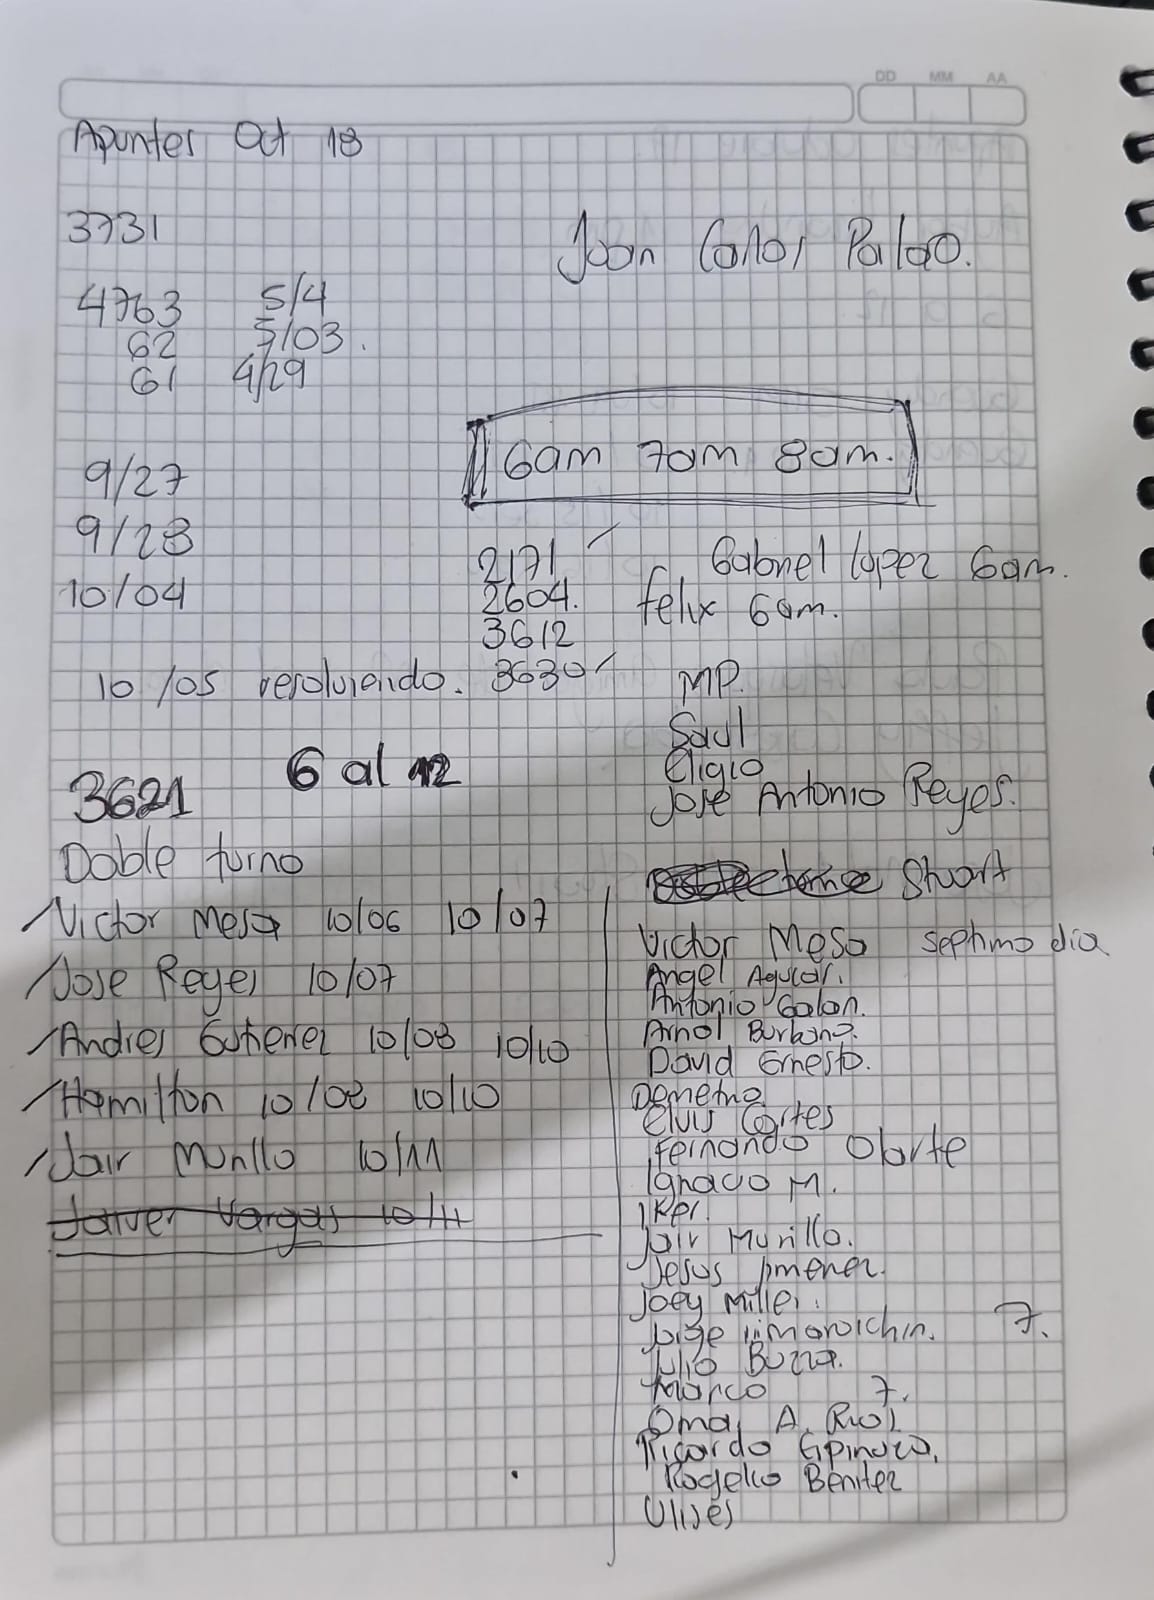 DD MM AA
Apuntes Oct 18
3731
Joan Carlos Palao.
4763 5/4
62 5/03.
61 4/29
6am 7am 8am.
9/27
9/28
10/04
10/05 resolviendo.
2171 Gabriel Lopez 6am.
2604. felix 6am.
3612
3630
MP.
Saul
Eligio
Jose Antonio Reyes.
6 al 12
3621
Doble turno
Victor Mesa 10/06 10/07
Jose Reyes 10/07
Andres Gutierrez 10/08 10/10
Hamilton 10/08 10/10
Jair Murillo 10/11
Janver Vargas 10/11
Stuart
Victor Mesa septimo dia
Angel Aguilar.
Antonio Galan.
Arnol Burbano.
David Ernesto.
Demetrio
Elvis Cortes
Fernando Olarte
Ignacio M.
Jair Murillo.
Jesus Jimenez.
Joey Miller.
Jorge 7.
Julio Buzza.
Marco 7.
Omar A. Rios
Ricardo Espinoza.
Rogelio Benitez
Ulises